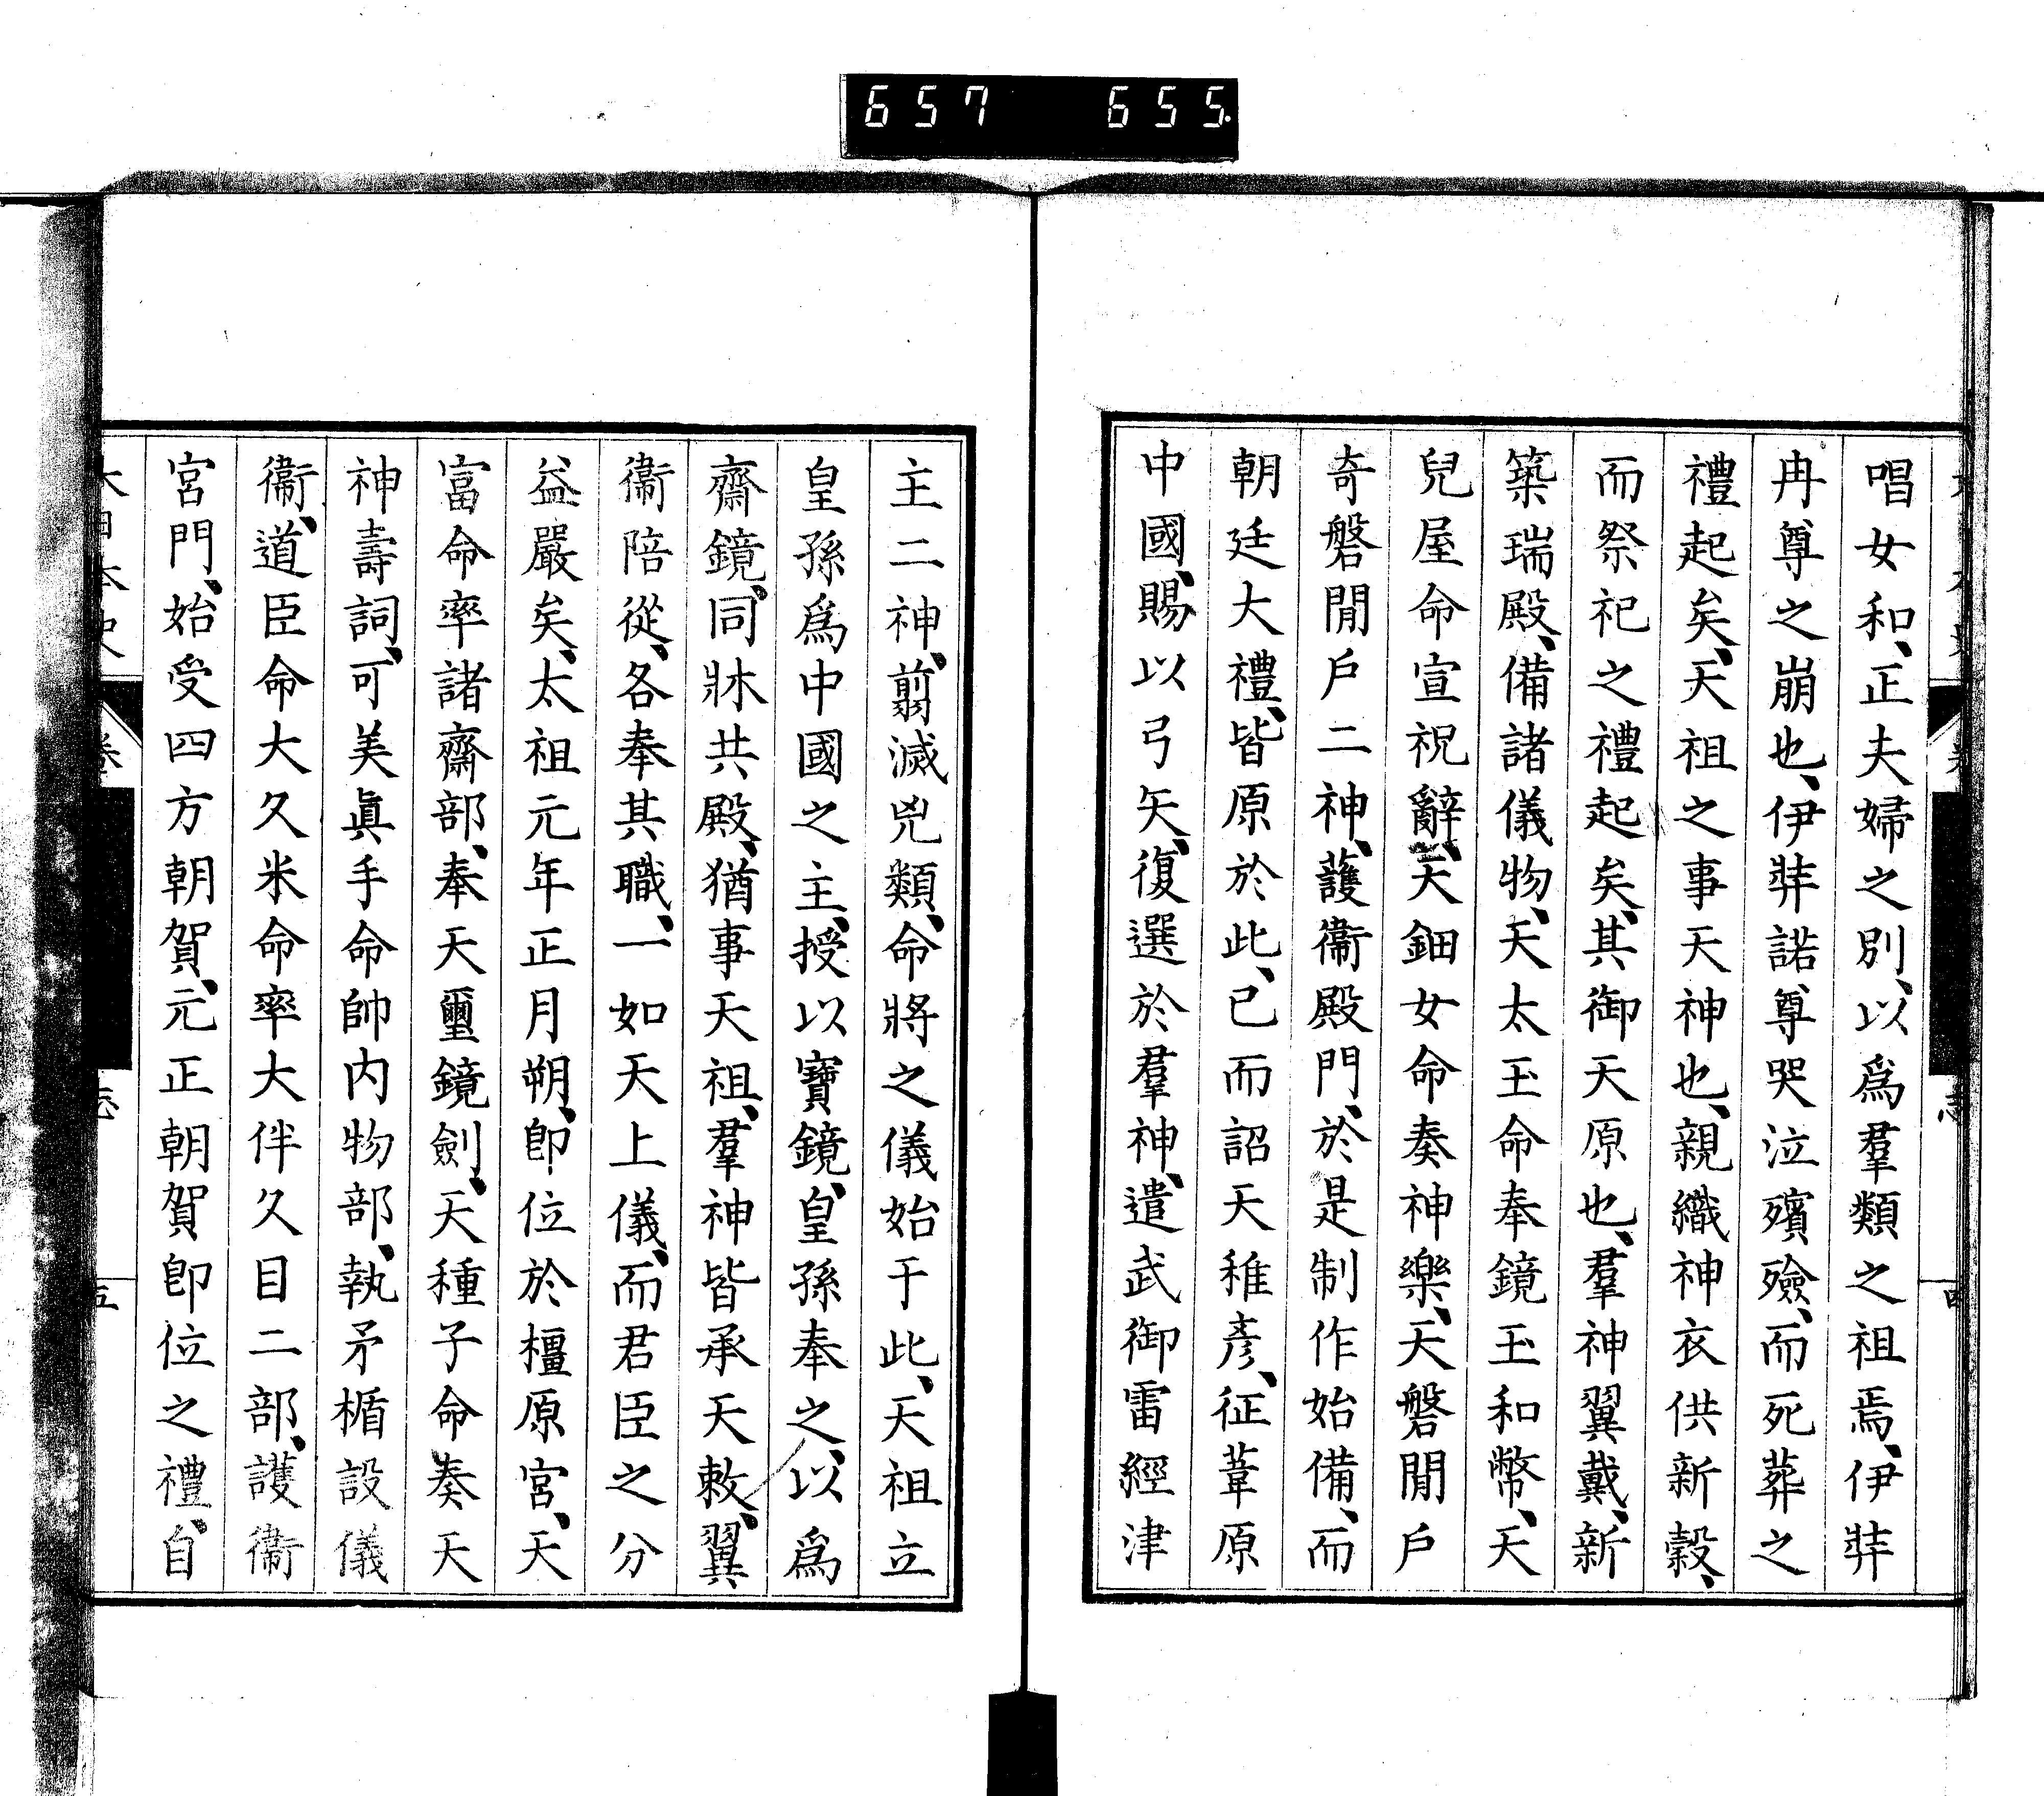 657 655
唱女和、正夫婦之別、以爲羣類之祖焉、伊弉
冉尊之崩也、伊弉諾尊哭泣殯殮、而死葬之
禮起矣、天祖之事天神也、親織神衣供新穀、
而祭祀之禮起矣、其御天原也、羣神翼戴、新
築瑞殿、備諸儀物、天太玉命奉鏡玉和幣、天
兒屋命宣祝辭、天鈿女命奏神樂、天磐閒戶
奇磐閒戶二神、護衞殿門、於是制作始備、而
朝廷大禮、皆原於此、已而詔天稚彥、征葦原
中國、賜以弓矢、復選於羣神、遣武御雷經津
主二神、翦滅兇類、命將之儀始于此、天祖立
皇孫爲中國之主、授以寶鏡、皇孫奉之、以爲
齋鏡、同牀共殿、猶事天祖、羣神皆承天敕、翼
衞陪從、各奉其職、一如天上儀、而君臣之分
益嚴矣、太祖元年正月朔、卽位於橿原宮、天
富命率諸齋部、奉天璽鏡劍、天種子命奏天
神壽詞、可美眞手命帥內物部、執矛楯設儀
衞、道臣命大久米命率大伴久目二部、護衞
宮門、始受四方朝賀、元正朝賀卽位之禮、自
大日本史 卷 志 五